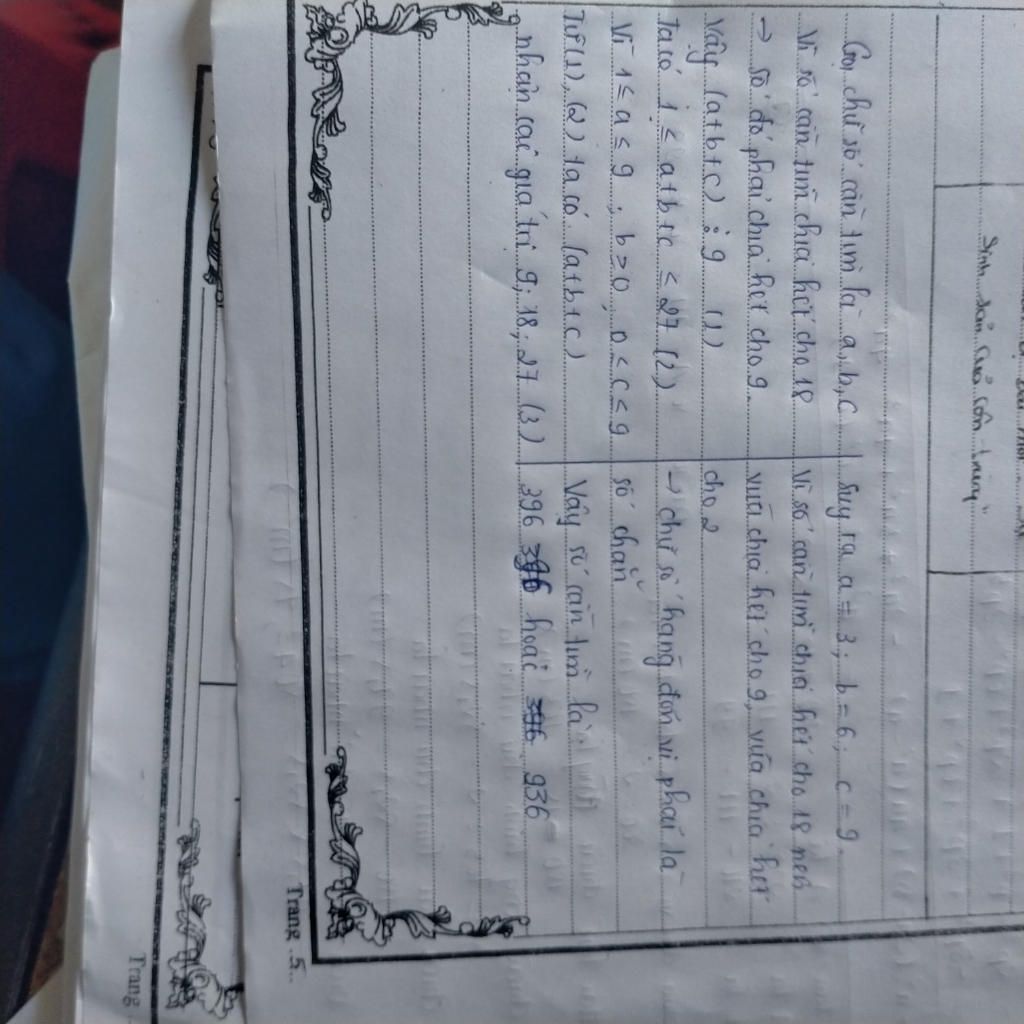 Sinh sản của côn trùng"
Gọi chữ số cần tìm là a, b, c
Vì số cần tìm chia hết cho 18
→ số đó phải chia hết cho 9.
Vậy (a+b+c) ⋮ 9 (1)
Ta có 1 ≤ a+b+c ≤ 27 (2)
Vì 1 ≤ a ≤ 9 ; b ≥ 0 ; 0 < c ≤ 9
Từ (1), (2) ta có (a+b+c)
nhận các giá trị 9; 18; 27 (3)
suy ra a = 3; b = 6; c = 9.
Vì số cần tìm chia hết cho 18 nên
vừa chia hết cho 9, vừa chia hết
cho 2
→ chữ số hàng đơn vị phải là
số chẵn
Vậy số cần tìm là
396 hoặc 936
Trang 5
Trang